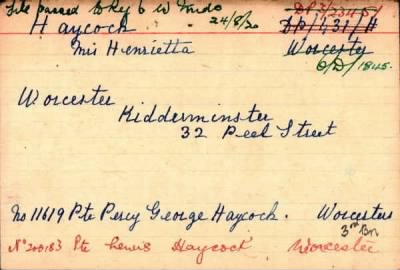 File passed Dky 6 W Funds 24/8/20
Haycock DP/431/H
Mrs Henrietta Worcester
6/D/1845.
Worcester
Kidderminster
32 Peel Street
No 11619 Pte Percy George Haycock. Worcesters
3rd Bn
No 200183 Pte Lewis Haycock Worcester